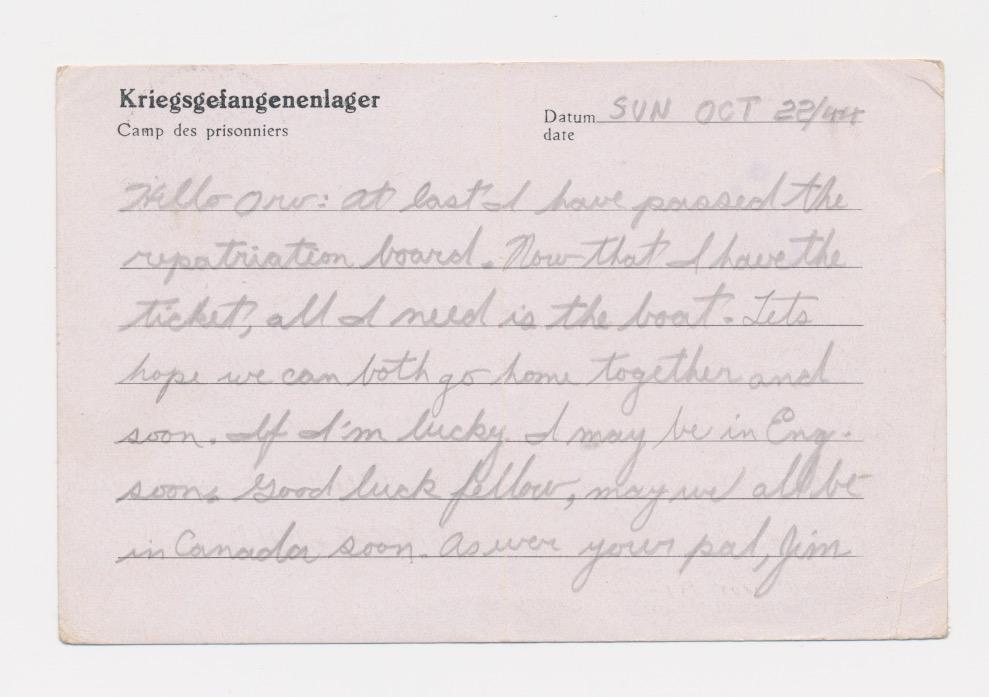 Kriegsgefangenenlager
Camp des prisonniers
Datum SUN OCT 22/44
date
Hello Orv: At last I have passed the
repatriation board. Now that I have the
ticket, all I need is the boat. Lets
hope we can both go home together and
soon. If I'm lucky I may be in Eng.
soon. Good luck fellow, may we all be
in Canada soon. As ever your pal, Jim